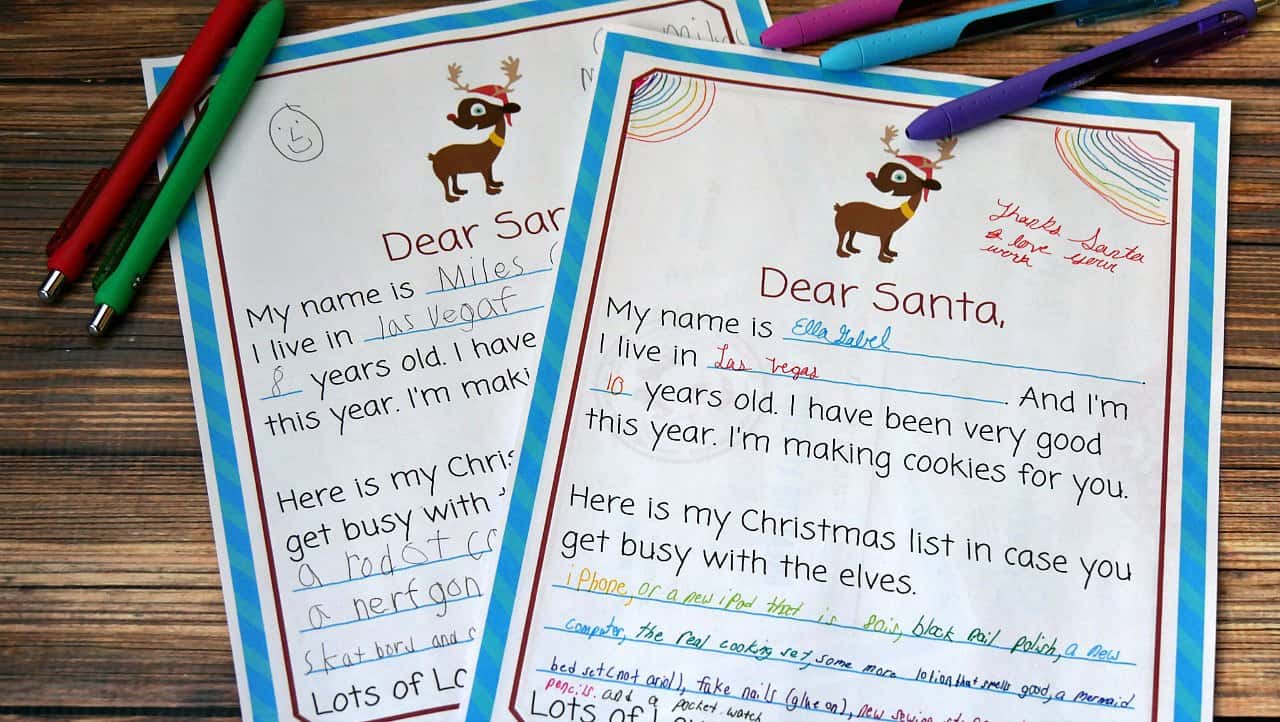 Dear San
My name is Miles
I live in las vegas
8 years old. I have
this year. I'm maki
Here is my Chris
get busy with
a nerf gon
skat bord and
Lots of Lo
Thanks Santa
I love your
work
Dear Santa,
My name is Ella Gabel.
I live in Las Vegas. And I'm
10 years old. I have been very good
this year. I'm making cookies for you.
Here is my Christmas list in case you
get busy with the elves.
iPhone, or a new iPod that is 8gis, black nail polish, a new
computer, the real cooking set, some more lotion that smells good, a mermaid
bed set (not ariol), fake nails (glue on), new sewing
pencils. and a pocket watch
Lots of